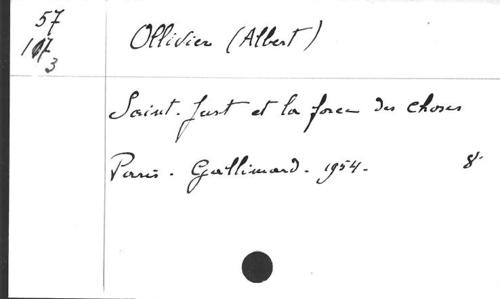 57
3
Ollivier (Albert)
Saint-Just et la force des choses
Paris. Gallimard. 1954.
8°